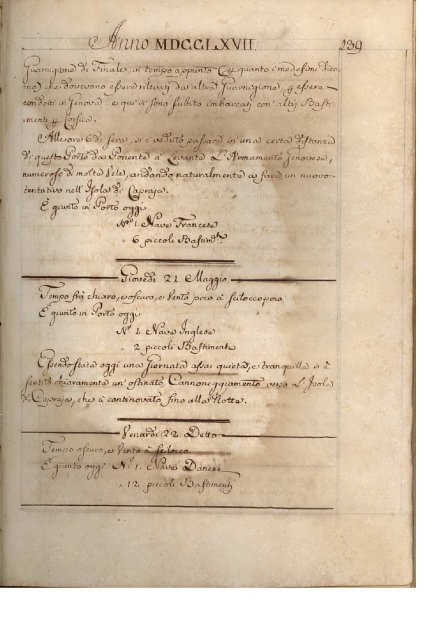 Anno MDCCLXVII. 239
Guarnigione di Finale, in tempo appunto quanto i medesimi dico=
no, che dovevano essere rilevati da altra Guarnigione essere
condotti in Genova e qui si sono subito imbarcati con altri Basti=
menti Corsica.
Alle ore 6 di sera, si è veduto passare in una certa distanza
di questo Porto da Ponente a Levante L'Armamento Genovese,
numeroso di molte Vele, andando naturalmente a fare un nuovo
tentativo nell'Isola di Capraja.
E' giunto in Porto oggi
N.º 1. Nave Francese
6 piccoli Bastim.ti
Giovedì 21 Maggio
Tempo frà chiaro, e oscuro, e Vento poco a Scilocco poco,
E' giunto in Porto oggi
N.º Nave Inglese
2 piccoli Bastimenti
Essendo stata oggi una Giornata assai quieta, e tranquilla si è
sentito chiaramente un'ostinato Cannoneggiamento verso L'Isola
di Capraja, che à continovato fino alla Notte.
Venardì 22 Detto
Tempo oscuro, e Vento a Scilocco
E' giunto oggi N.º 1. Nave Danese
12 piccoli Bastimenti